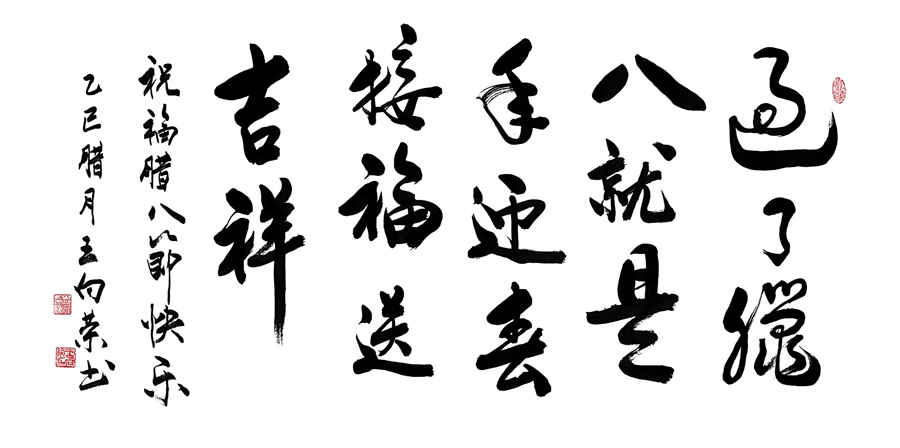 过了臘
八就是
年迎春
接福送
吉祥
祝福腊八节快乐
乙巳腊月王向荣书